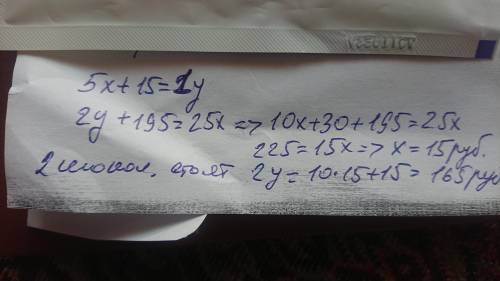 5x+15=1y
2y+195=25x=>10x+30+195=25x
225=15x=>x=15руб.
2 шокол. стоят 2y=10·15+15=165руб